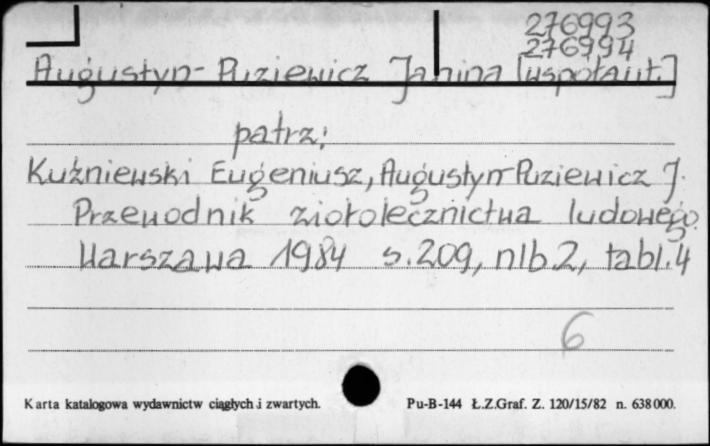 276993
276994
Augustyn-Puziewicz Janina [współaut.]
patrz:
Kuźniewski Eugeniusz, Augustyn-Puziewicz J.
Przewodnik ziołolecznictwa ludowego.
Warszawa 1984 s.209, nlb2, tabl.4
6
Karta katalogowa wydawnictw ciągłych i zwartych. Pu-B-144 Ł.Z.Graf. Z. 120/15/82 n. 638000.